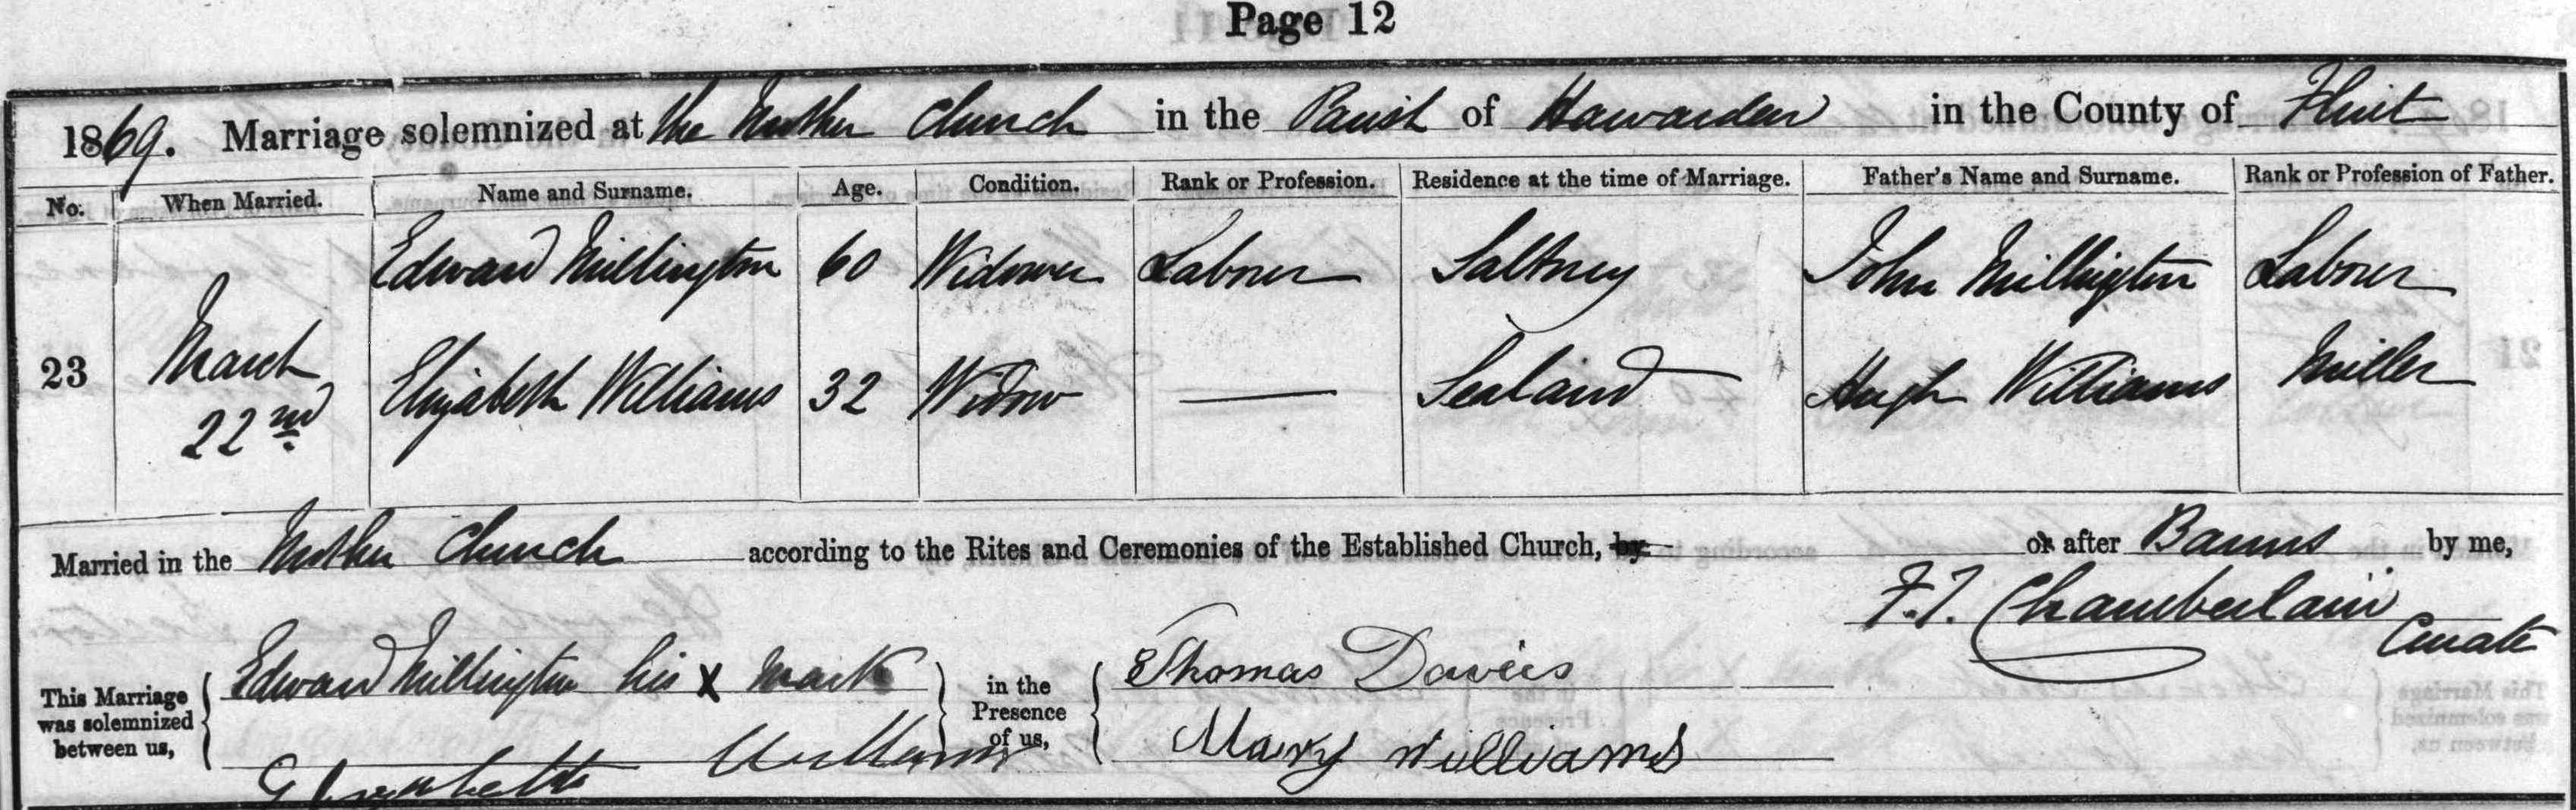 Page 12
1869. Marriage solemnized at the Mother Church in the Parish of Hawarden in the County of Flint
No. When Married. Name and Surname. Age. Condition. Rank or Profession. Residence at the time of Marriage. Father's Name and Surname. Rank or Profession of Father.
Edward Millington 60 Widower Labrer Saltney John Millington Labrer
23 March 22nd Elizabeth Williams 32 Widow — Sealand Hugh Williams Miller
Married in the Mother Church according to the Rites and Ceremonies of the Established Church, by or after Banns by me,
F.T. Chamberlain
Curate
This Marriage was solemnized between us, Edward Millington his X mark in the Presence of us, Thomas Davies
Elizabeth Williams Mary Williams